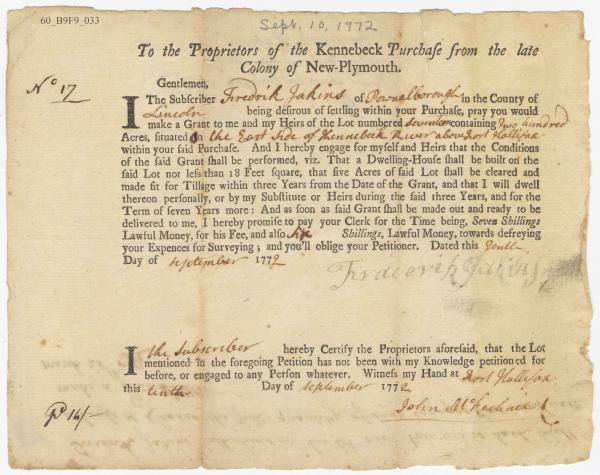 60_B9F9_033
Sept. 10, 1972
To the Proprietors of the Kennebeck Purchase from the late
Colony of New-Plymouth.
No 17
Gentlemen,
The Subscriber Fredrik Jakins of Pownalborough in the County of
Lincoln being desirous of settling within your Purchase, pray you would
make a Grant to me and my Heirs of the Lot numbered containing two hundred
Acres, situated on the East Side of Kennebeck River above Fort Hallifax
within your said Purchase. And I hereby engage for myself and Heirs that the Conditions
of the said Grant shall be performed, viz. That a Dwelling-House shall be built on the
said Lot not less than 18 Feet square, that five Acres of said Lot shall be cleared and
made fit for Tillage within three Years from the Date of the Grant, and that I will dwell
thereon personally, or by my Substitute or Heirs during the said three Years, and for the
Term of seven Years more: And as soon as said Grant shall be made out and ready to be
delivered to me, I hereby promise to pay your Clerk for the Time being, Seven Shillings
Lawful Money, for his Fee, and also Six Shillings, Lawful Money, towards defreying
your Expences for Surveying; and you'll oblige your Petitioner. Dated this tenth
Day of September 1772
Frederik Jakins
I the Subscriber hereby Certify the Proprietors aforesaid, that the Lot
mentioned in the foregoing Petition has not been with my Knowledge petitioned for
before, or engaged to any Person whatever. Witness my Hand at Fort Hallifax
this tenth Day of September 1772
John McKechnie
Pd 14/-